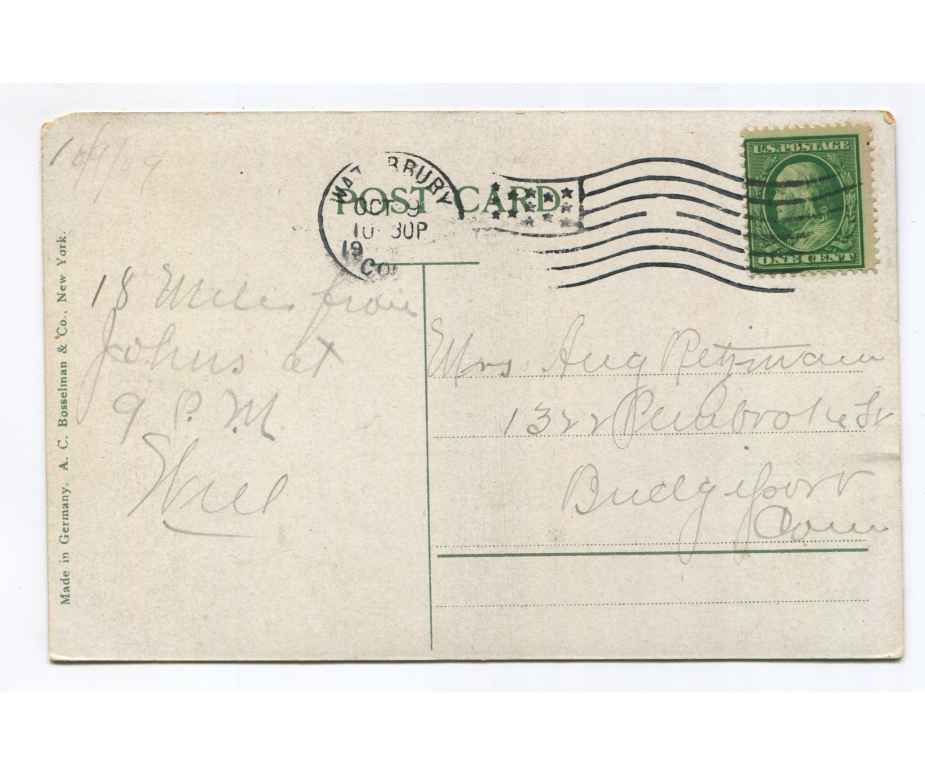 10/9/9
WATERBURY
OCT 9
10 30P
19
CO
POST CARD
U.S. POSTAGE
ONE CENT
18 Miles from
Johns at
9 P.M.
Will
Mrs Aug Retzman
1322 Pembroke St
Bridgeport
Conn
Made in Germany. A. C. Bosselman & Co., New York.